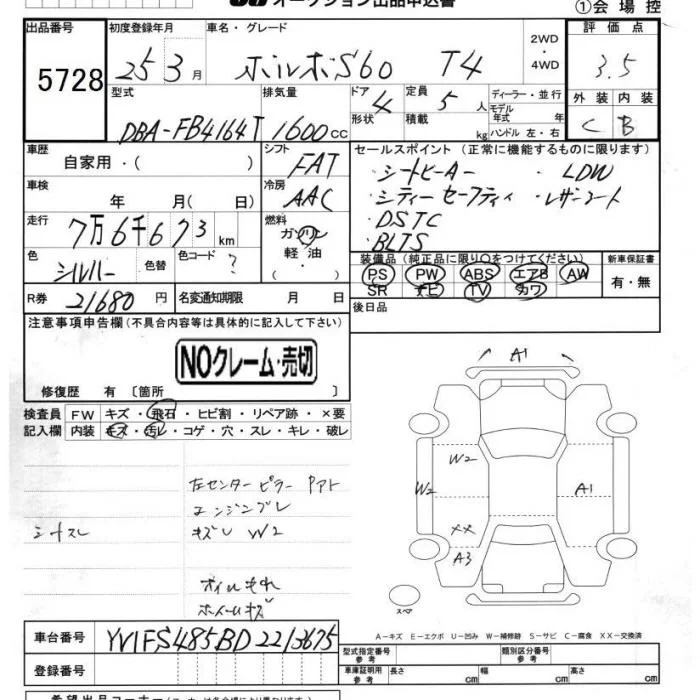 オークション出品申込書
①会場控
出品番号
5728
初度登録年月
25 3月
車名・グレード
ボルボS60 T4
2WD
・
4WD
評価点
3.5
型式
DBA-FB4164T
排気量
1600cc
ドア
4
形状
定員
5人
積載
kg
ディーラー・並行
モデル
年式 年
ハンドル 左・右
外装 内装
C B
車歴
自家用・( )
シフト
FAT
セールスポイント(正常に機能するものに限ります)
・シートヒーター ・LDW
・シティーセーフティ ・レザーシート
・DSTC
・BLTS
車検
年 月( 日)
冷房
AAC
走行
7万6千673km
燃料
ガソリン
軽油
・( )
色
シルバー
色替
色コード
?
装備品(純正品に限り〇をつけてください)
PS PW ABS エアB AW
SR ナビ TV カワ
新車保証書
有・無
R券
21680円
名変通知期限 月 日
後日品
注意事項申告欄(不具合内容等は具体的に記入して下さい)
NOクレーム・売切
修復歴 有〔箇所 〕
検査員
記入欄
FW キズ・飛石・ヒビ割・リペア跡・×要
内装 キズ・汚レ・コゲ・穴・スレ・キレ・破レ
左センターピラー アト
エンジンブレ
シートスレ
キズし W2
オイルもれ
ホイールキズ
A1
W2
W2
A1
XX
A3
スペア
A-キズ E-エクボ U-凹み W-補修跡 S-サビ C-腐食 XX-交換済
車台番号
YV1FS485BD2213675
登録番号
型式指定番号
参考
類別区分番号
参考
車庫証明用
参考
長さ cm
幅 cm
高さ cm
希望出品コーナー